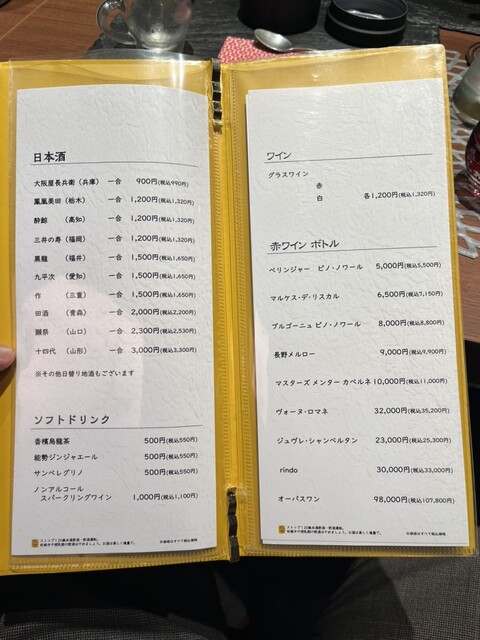 日本酒
大阪屋長兵衛（兵庫） 一合 900円(税込990円)
鳳凰美田（栃木） 一合 1,200円(税込1,320円)
酔鯨 （高知） 一合 1,200円(税込1,320円)
三井の寿（福岡） 一合 1,200円(税込1,320円)
黒龍 （福井） 一合 1,500円(税込1,650円)
九平次 （愛知） 一合 1,500円(税込1,650円)
作 （三重） 一合 1,500円(税込1,650円)
田酒 （青森） 一合 2,000円(税込2,200円)
獺祭 （山口） 一合 2,300円(税込2,530円)
十四代 （山形） 一合 3,000円(税込3,300円)
※その他日替り地酒もございます
ソフトドリンク
香檳烏龍茶 500円(税込550円)
能勢ジンジャエール 500円(税込550円)
サンペレグリノ 500円(税込550円)
ノンアルコール
スパークリングワイン 1,000円(税込1,100円)
ワイン
グラスワイン
赤
白 各1,200円(税込1,320円)
赤ワイン ボトル
ベリンジャー ピノ・ノワール 5,000円(税込5,500円)
マルケス・デ・リスカル 6,500円(税込7,150円)
ブルゴーニュ ピノ・ノワール 8,000円(税込8,800円)
長野メルロー 9,000円(税込9,900円)
マスターズ メンター カベルネ 10,000円(税込11,000円)
ヴォーヌ・ロマネ 32,000円(税込35,200円)
ジュヴレ・シャンベルタン 23,000円(税込25,300円)
rindo 30,000円(税込33,000円)
オーパスワン 98,000円(税込107,800円)